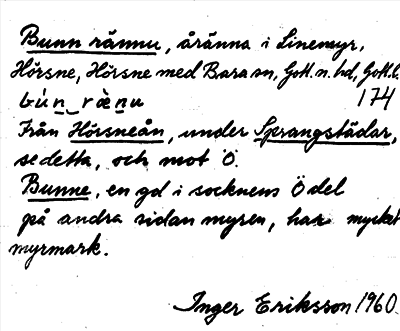 Bunn rännu, åränna i Linemyr,
Hörsne, Hörsne med Bara sn, Gotl. n. hd, Gotl. l.
bùn̲ ræ̀n̲u 174
Från Hörsneån, under Sprangstädar,
se detta, och mot Ö.
Bunne, en gd i socknens Ö del
på andra sidan myren, har mycket
myrmark.
Inger Eriksson 1960.